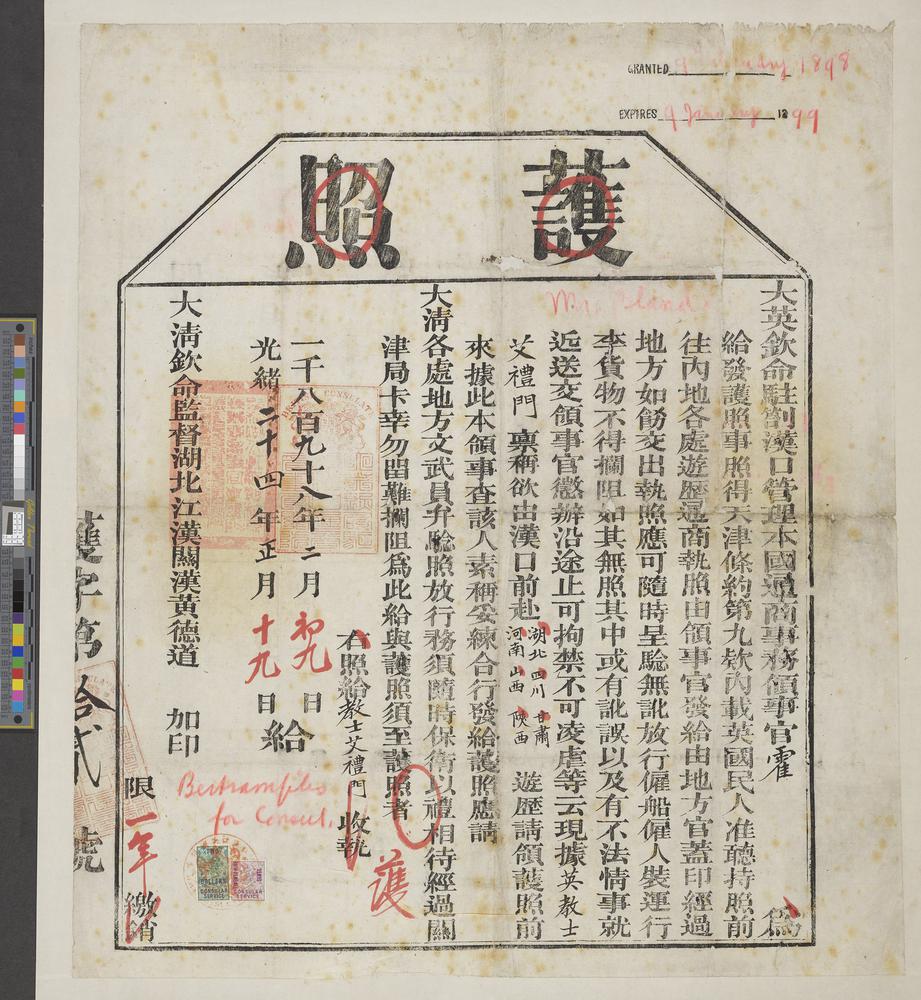 GRANTED 9 1898
EXPIRES 9 January 1899
護照
Mr. Bland
大英欽命駐劄漢口管理本國通商事務領事官霍 為
給發護照事照得天津條約第九欵內載英國民人准聽持照前
往內地各處遊歷通商執照由領事官發給由地方官蓋印經過
地方如飭交出執照應可隨時呈驗無訛放行僱船僱人裝運行
李貨物不得攔阻如其無照其中或有訛誤以及有不法情事就
近送交領事官懲辦沿途止可拘禁不可凌虐等云現據英教士
艾禮門 稟稱欲由漢口前赴湖北 四川 甘肅 河南 山西 陝西 遊歷請領護照前
來據此本領事查該人素稱妥練合行發給護照應請
大清各處地方文武員弁驗照放行務須隨時保衛以禮相待經過關
津局卡幸勿畱難攔阻為此給與護照須至護照者
右照給教士艾禮門 收執
護
一千八百九十八年二月初九日
給
光緒二十四年正月十九日
大清欽命監督湖北江漢關漢黃德道 加印
限一年繳銷
for Consul.
CONSULAR SERVICE
CONSULAR SERVICE
護字第拾貳號